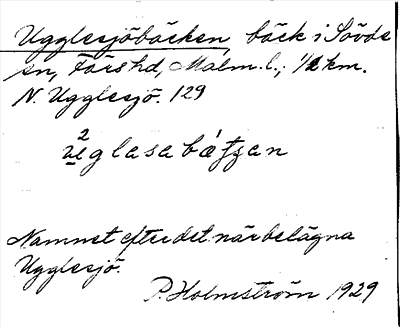 Ugglesjöbäcken, bäck i Sövde
sn, Färs hd, Malm. l.; 1/2 km.
N. Ugglesjö. 129
2
uglasabä́tʃan
Namnet efter det närbelägna
Ugglesjö.
P. Holmström 1929